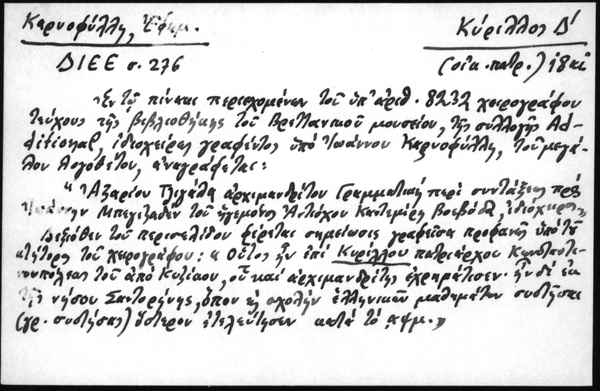 Καρυοφύλλη, Ἐφημ.
Κύριλλος Δ'
ΔΙΕΕ σ. 276
(οἰκ. πατρ.) 18
«Ἐν τῷ πίνακι περιεχομένων τοῦ ὑπ' ἀριθ. 8232 χειρογράφου
τεύχους τῆς βιβλιοθήκης τοῦ Βρεττανικοῦ μουσείου, τῆς συλλογῆς Ad-
ditional, ἰδιοχείρως γραφέντος ὑπὸ Ἰωάννου Καρυοφύλλη, τοῦ μεγά-
λου λογοθέτου, ἀναγράφεται:
"Ἀζαρίου Τζιγάλα ἀρχιμανδρίτου Γραμματικὴ περὶ συντάξεως πρὸς
Ἰωάννην Μπεγιζαδὲν τοῦ ἡγεμόνος Ἀντιόχου Κατεμίρη Βοεβόδα, ἰδιόχειρος"
Δεξιόθεν τοῦ περισελίδου φέρεται σημείωσις γραφεῖσα προφανῶς ὑπὸ τοῦ
κτήτορος τοῦ χειρογράφου: «Οὗτος ἦν ἐπὶ Κυρίλλου πατριάρχου Κωνσταντι-
νουπόλεως τοῦ ἀπὸ Κυζίκου, οὗ καὶ ἀρχιμανδρίτης ἐχρημάτισεν· ἦν δὲ ἐκ
τῆς νήσου Σαντορήνης, ὅπου καὶ σχολὴν ἑλληνικῶν μαθημάτων συστῆσαι
(γρ. συστήσας) ὕστερον ἐτελεύτησεν κατὰ τὸ ͵αψμ.»